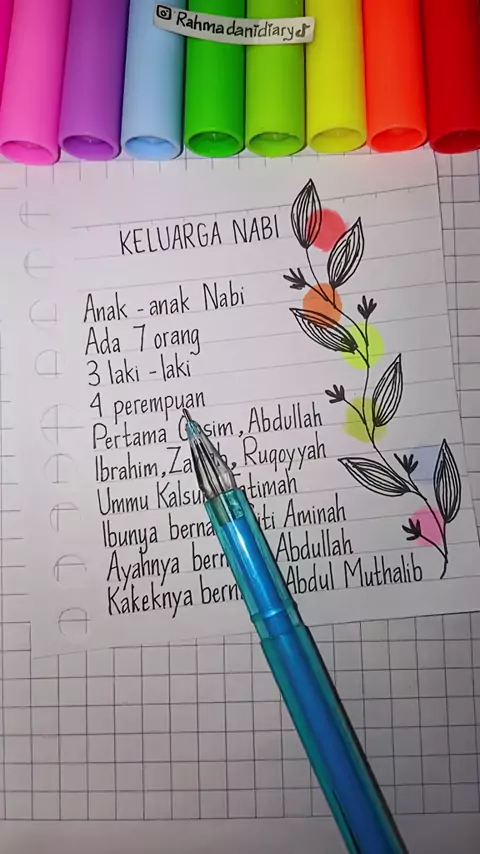 Rahmadanidiary
KELUARGA NABI
Anak - anak Nabi
Ada 7 orang
3 laki - laki
4 perempuan
Pertama , Abdullah
Ibrahim, Ruqoyyah
Ummu Fatimah
Ibunya Siti Aminah
Ayahnya Abdullah
Kakeknya Abdul Muthalib